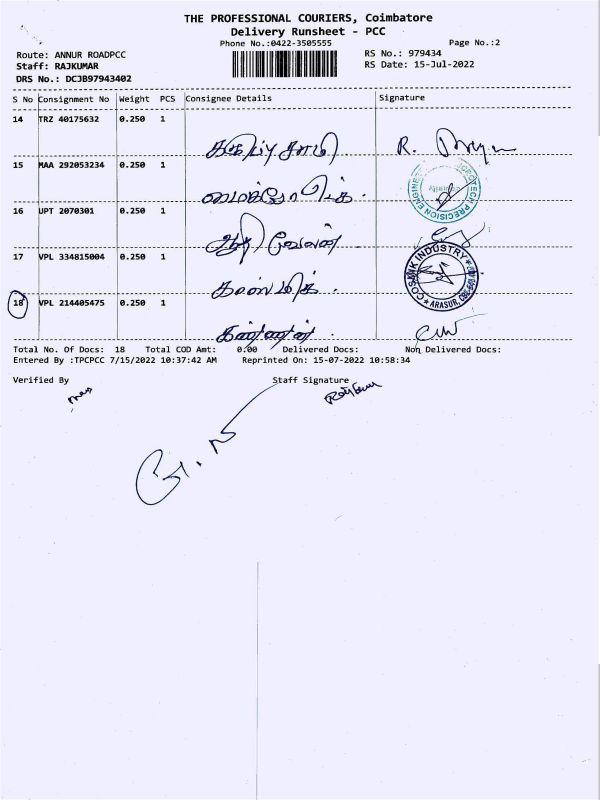 THE PROFESSIONAL COURIERS, Coimbatore
Delivery Runsheet - PCC
Phone No.:0422-3505555
Page No.:2
Route: ANNUR ROADPCC
RS No.: 979434
Staff: RAJKUMAR
RS Date: 15-Jul-2022
DRS No.: DCJB97943402
S No Consignment No Weight PCS Consignee Details Signature
14 TRZ 40175632 0.250 1
கருப்பு சாமி
15 MAA 292053234 0.250 1
மைக்ரோ டெக்.
16 UPT 2070301 0.250 1
ஆதி வேலன்
17 VPL 334815004 0.250 1
18 VPL 214405475 0.250 1
கண்ணன்
PRECISION ENGINE
COSINK INDUSTRY
ARASUR,
Total No. Of Docs: 18 Total COD Amt: 0.00 Delivered Docs: Non Delivered Docs:
Entered By :TPCPCC 7/15/2022 10:37:42 AM Reprinted On: 15-07-2022 10:58:34
Verified By Staff Signature